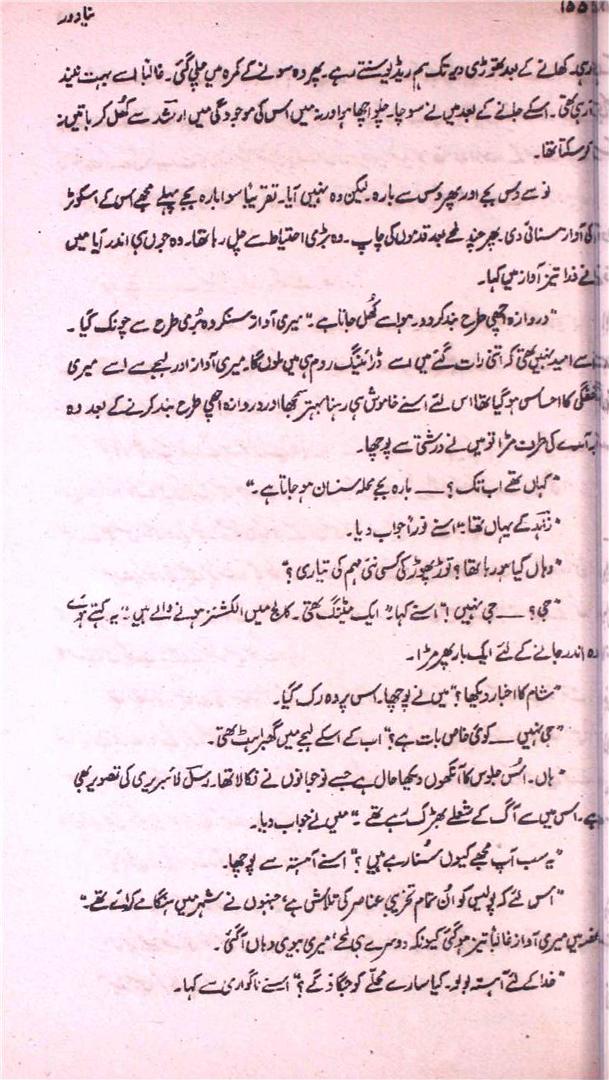 ۱۵۵
نیا دور
رہی۔ کھانے کے بعد تھوڑی دیر تک ہم ریڈیو سنتے رہے۔ پھر وہ سونے کے کمرہ میں چلی گئی۔ غالباً اسے بہت نیند
آ رہی تھی۔ اسکے جانے کے بعد میں نے سوچا۔ چلو اچھا ہوا ورنہ میں اس کی موجودگی میں ارشد سے کھُل کر باتیں نہ
کر سکتا تھا۔
نو سے دس بجے اور پھر دس سے بارہ۔ لیکن وہ نہیں آیا۔ تقریباً سوا بارہ بجے پہلے مجھے اس کے اسکوٹر
کی آواز سنائی دی۔ پھر چند لمحے بعد قدموں کی چاپ۔ وہ بڑی احتیاط سے چل رہا تھا۔ وہ جوں ہی اندر آیا میں
نے ذرا تیز آواز میں کہا۔
"دروازہ اچھی طرح بند کر دو۔ ہوا سے کھُل جاتا ہے۔" میری آواز سنکر وہ بُری طرح سے چونک گیا۔
اسے امید نہیں تھی کہ اتنی رات گئے میں اسے ڈرائینگ روم ہی میں ملوں گا۔ میری آواز اور لہجے سے اسے میری
خفگی کا احساس ہو گیا تھا اس لئے اسنے خاموش ہی رہنا بہتر سمجھا اور دروازہ اچھی طرح بند کرنے کے بعد وہ
برآمدے کی طرف مڑا تو میں نے درشتی سے پوچھا۔
"کہاں تھے اب تک؟ ــــ بارہ بجے محلہ سنسان ہو جاتا ہے۔"
"زاہد کے یہاں تھا" اسنے فوراً جواب دیا۔
"وہاں کیا ہو رہا تھا؟ توڑ پھوڑ کی کسی نئی مہم کی تیاری؟"
"جی؟ ــــ جی نہیں!" اسنے کہا" ایک میٹنگ تھی۔ کالج میں الکشنز ہونے والے ہیں" یہ کہتے ہوئے
وہ اندر جانے کے لئے ایک بار پھر مڑا۔
"شام کا اخبار دیکھا؟" میں نے پوچھا۔ اس پر وہ رک گیا۔
"جی نہیں ــــ کوئی خاص بات ہے؟" اب کے اسکے لہجے میں گھبراہٹ تھی۔
"ہاں۔ اُس جلوس کا آنکھوں دیکھا حال ہے جسے نوجوانوں نے نکالا تھا۔ رسل لائبریری کی تصویر بھی
ہے۔ اس میں سے آگ کے شعلے بھڑک رہے تھے۔" میں نے جواب دیا۔
"یہ سب آپ مجھے کیوں سُنا رہے ہیں؟" اسنے آہستہ سے پوچھا۔
"اس لئے کہ پولیس کو اُن تمام تخریبی عناصر کی تلاش ہے، جنہوں نے شہر میں ہنگامے کرائے تھے۔"
غصہ میں میری آواز غالباً تیز ہو گئی کیونکہ دوسرے ہی لمحے، میری بیوی وہاں آ گئی۔
"خدا کے لئے آہستہ بولو۔ کیا سارے محلّے کو جگا دو گے؟" اسنے ناگواری سے کہا۔